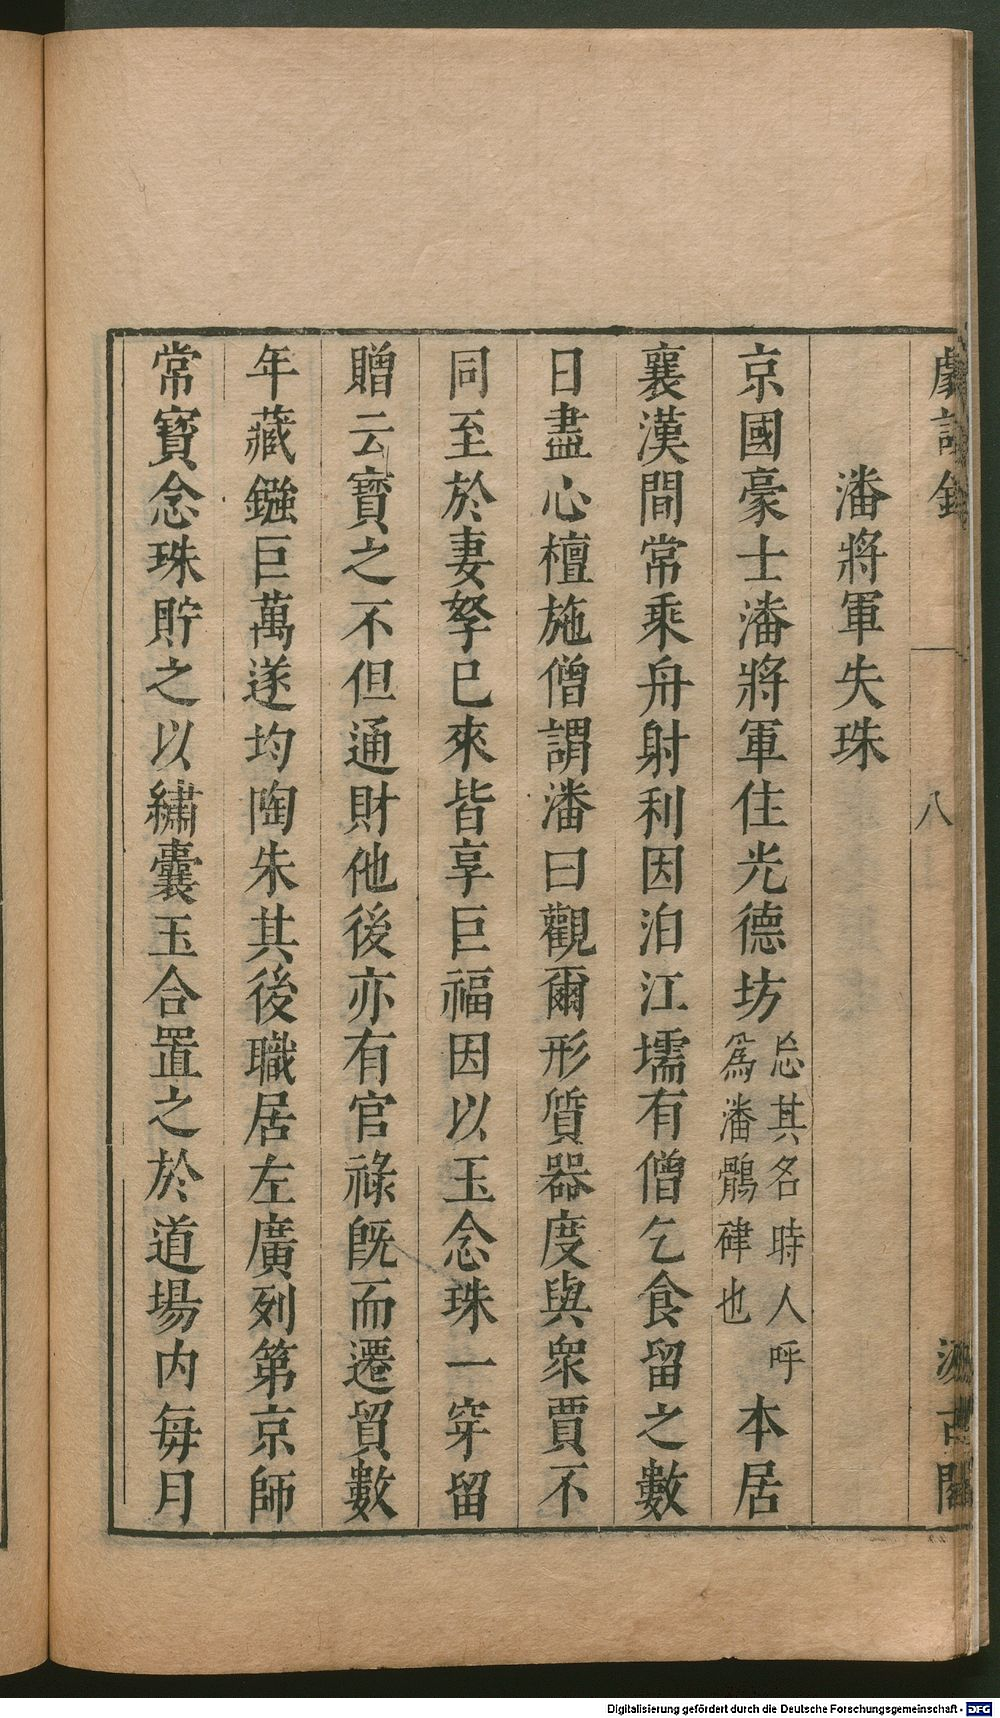 劇談錄
八
汲古閣
潘將軍失珠
京國豪士潘將軍住光德坊忘其名時人呼爲潘鶻硉也本居
襄漢間常乘舟射利因泊江壖有僧乞食留之數
日盡心檀施僧謂潘曰觀爾形質器度與衆賈不
同至於妻孥巳來皆享巨福因以玉念珠一穿留
贈云寶之不但通財他後亦有官祿旣而遷貿數
年藏鏹巨萬遂均陶朱其後職居左廣列第京師
常寶念珠貯之以繡囊玉合置之於道場内每月
Digitalisierung gefördert durch die Deutsche Forschungsgemeinschaft - DFG